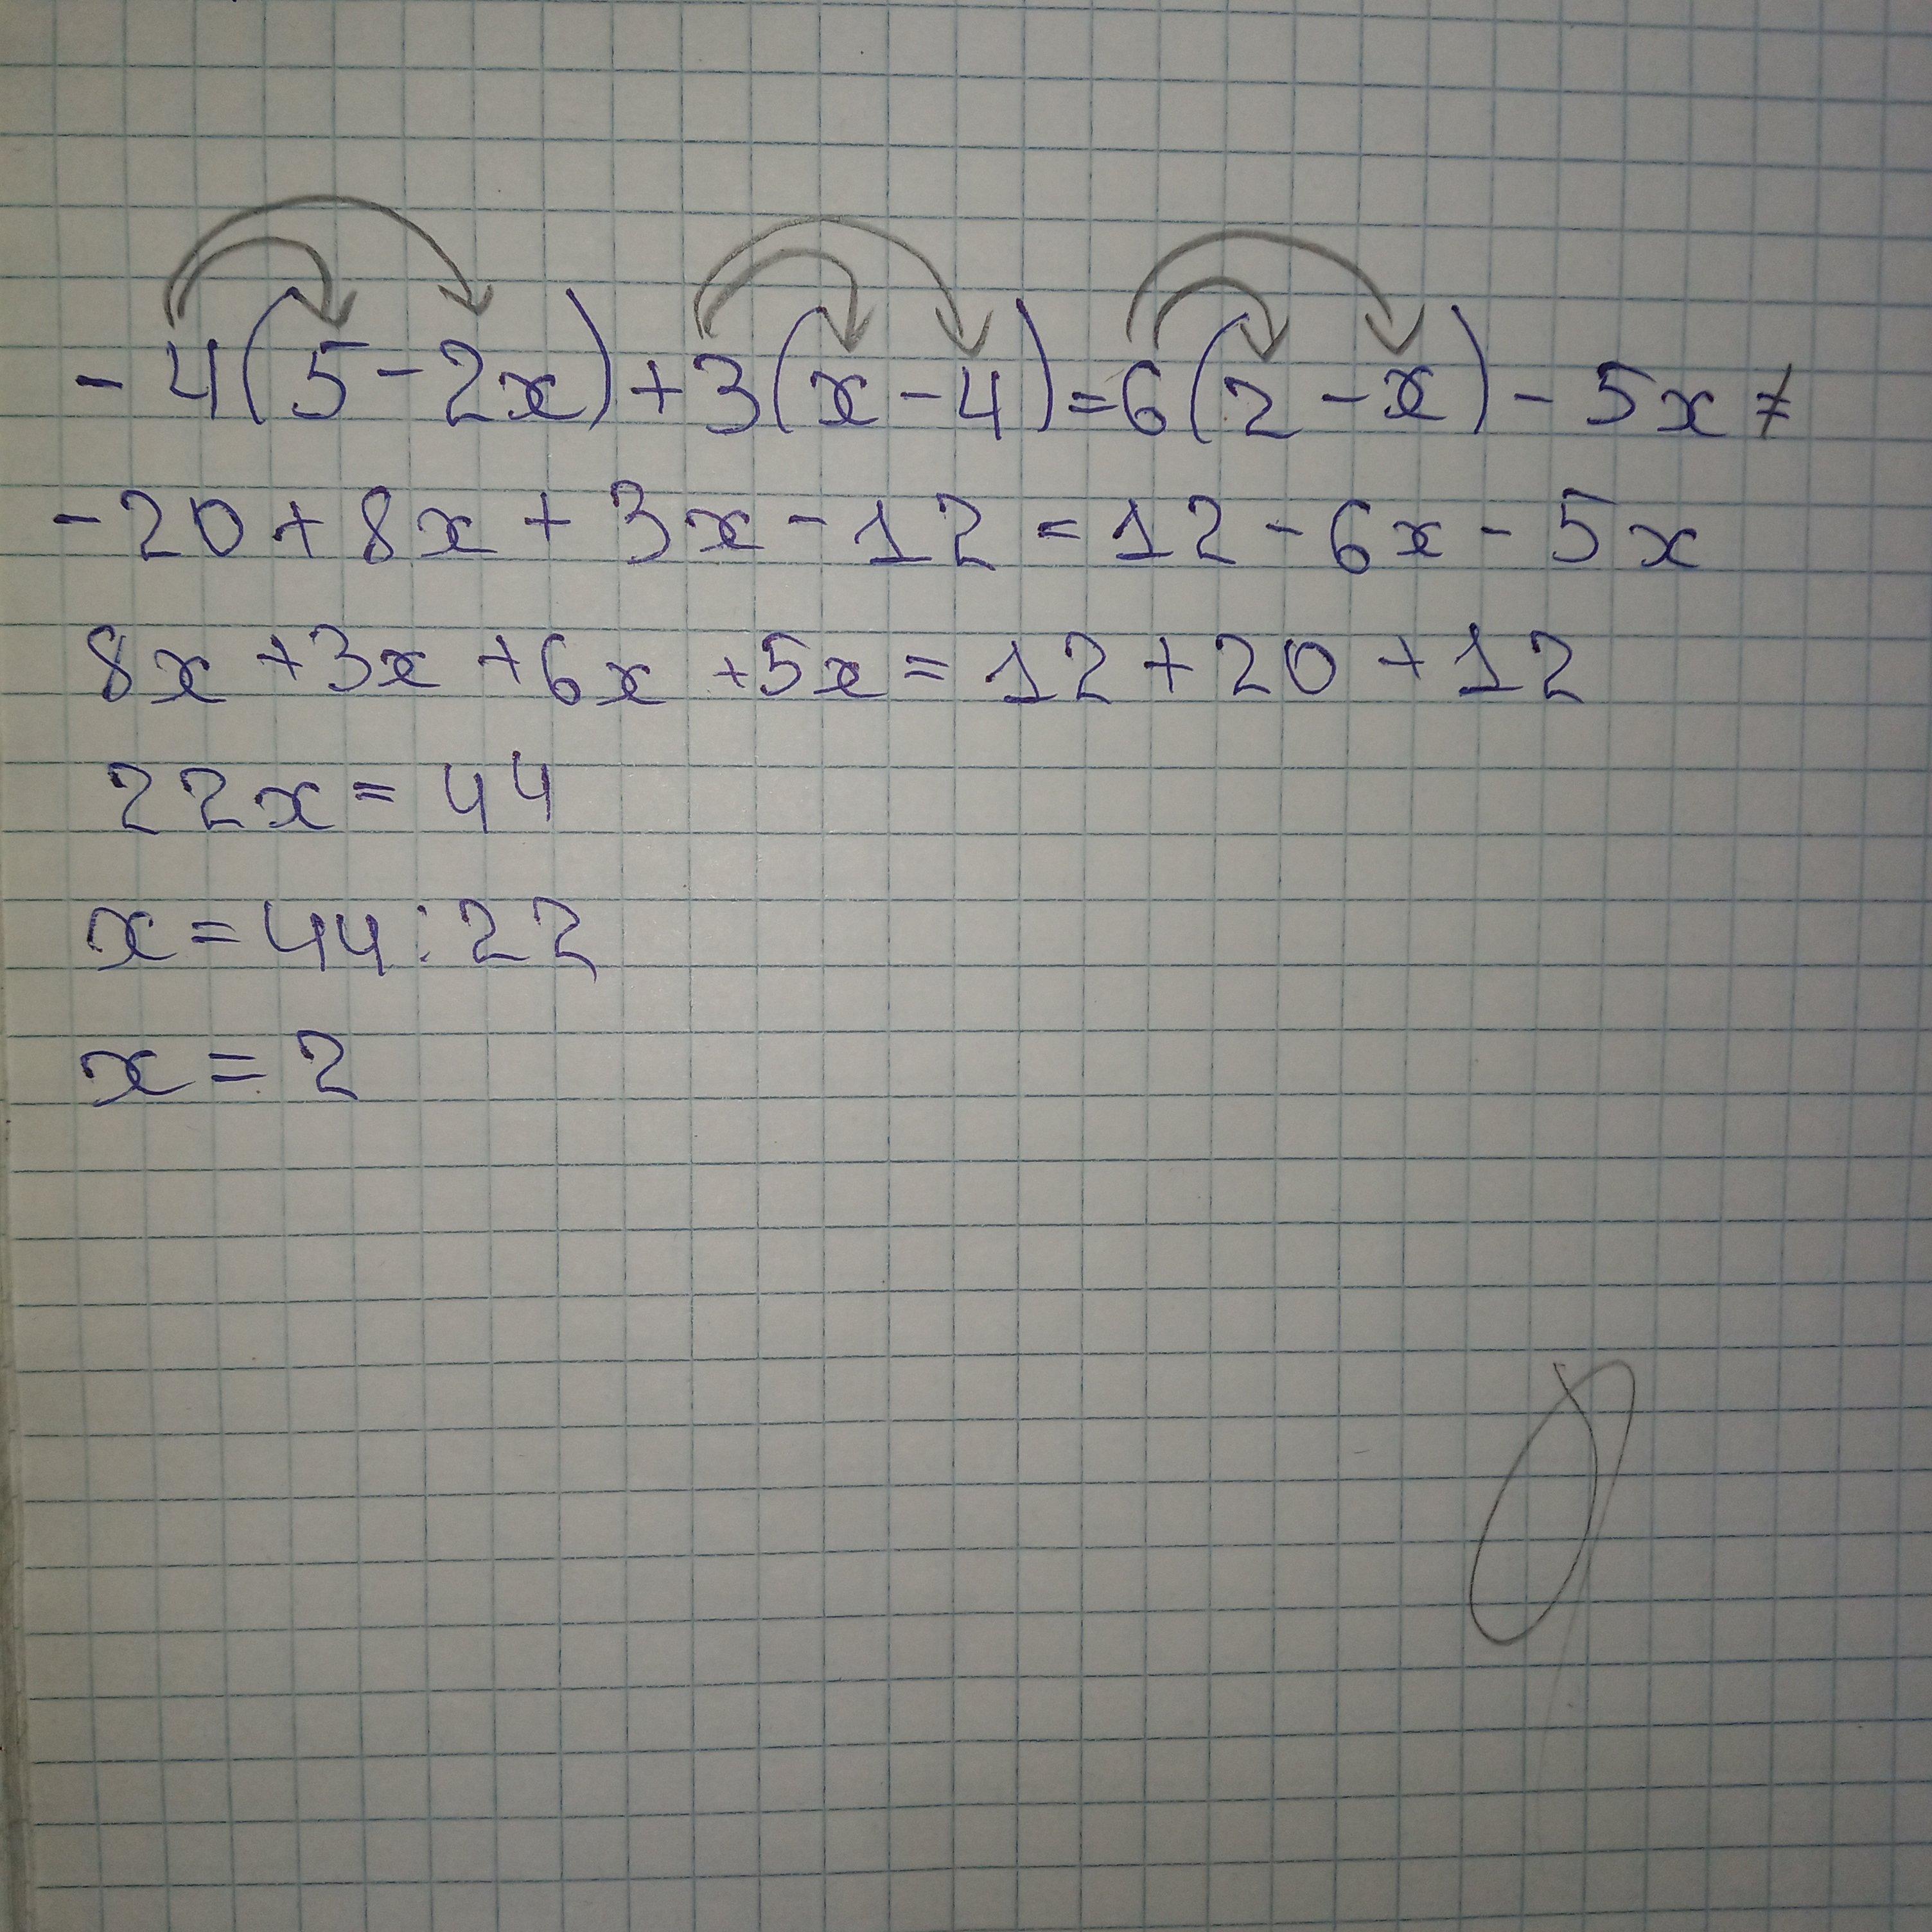 -4(5-2x)+3(x-4)=6(2-x)-5x
-20+8x+3x-12=12-6x-5x
8x+3x+6x+5x=12+20+12
22x=44
x=44:22
x=2